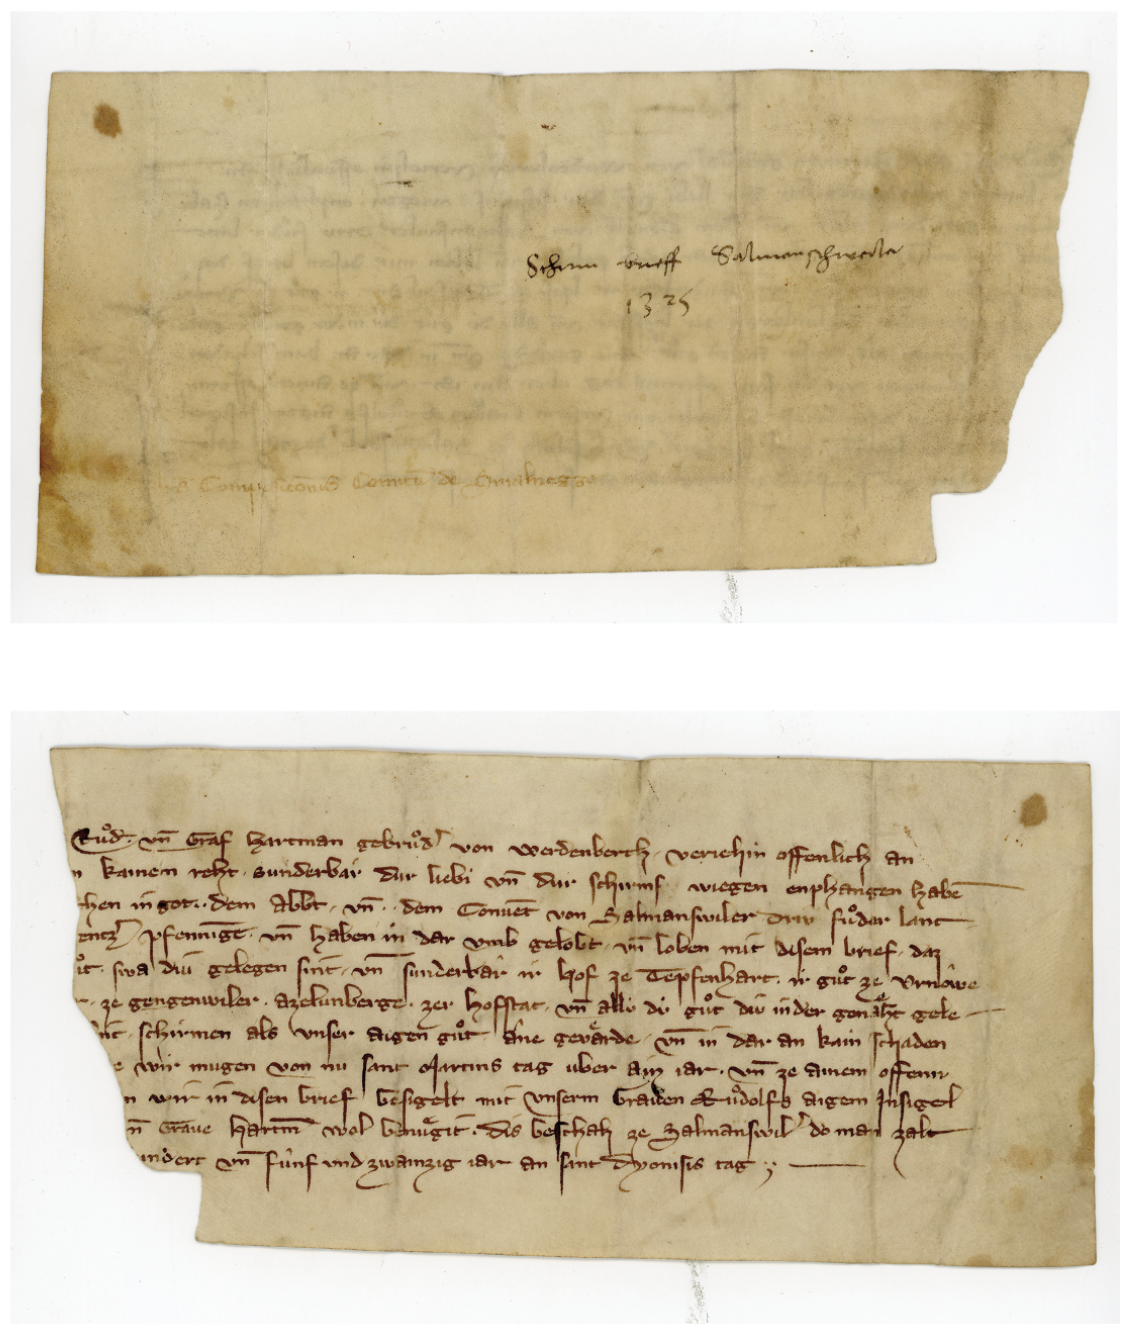 Schirm brieff Salmanschweiler
1325
Comitu de
Ruͦd. vn̄ Graf hartman gebruͦder von werdenberch. veriehin offenlich an
kainen reht. sunderbar dur liebi vn̄ dur schirmſ wegen enphangen habē
chen in got. dem Abbt. vn̄. dem Conuēt von Salmanswiler driv fuͦder lant
pfenninge. vn̄ haben in dar vmb gelobt. vn̄ loben mit disem brief. daz
uͦt. swa diu gelegen sint. vn̄ sunderbar ir hof ze Tepfenhart. ir guͦt ze vrnowe
ze gengenwiler. azelunberge. zer hofstat. vn̄ allv dv guͦt div in der genaͤht gele
int. schirmen als vnser aigen guͦt ane gevaͤrde. vn̄ in dar an kain schaden
e wir mugen von nu sant Martins tag vber ain iar. vn̄ ze ainem offenn
n wir in disen brief besigelt mit vnserm Grauen Ruͦdolfs aigem Insigel
n̄ Graue hartm̄ wol benuͤgit. dis beschah ze Salmanswil' do man zalt
undert vn̄ fúnf vnd zwainzig iar an sant dyonisis tag